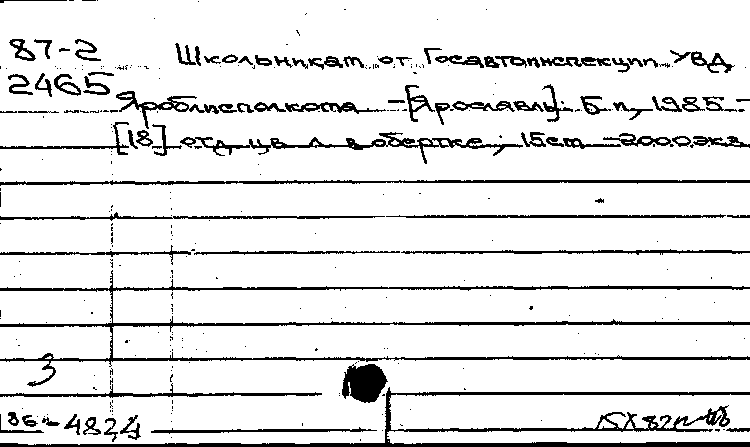 87-2
2465
Школьникам от Госавтоинспекции УВД
Яроблисполкома. – [Ярославль: Б. и., 1985. –
[18] отд. цв. л. в обертке; 15 см – 2000 экз.
3
86-4824
15 X 87